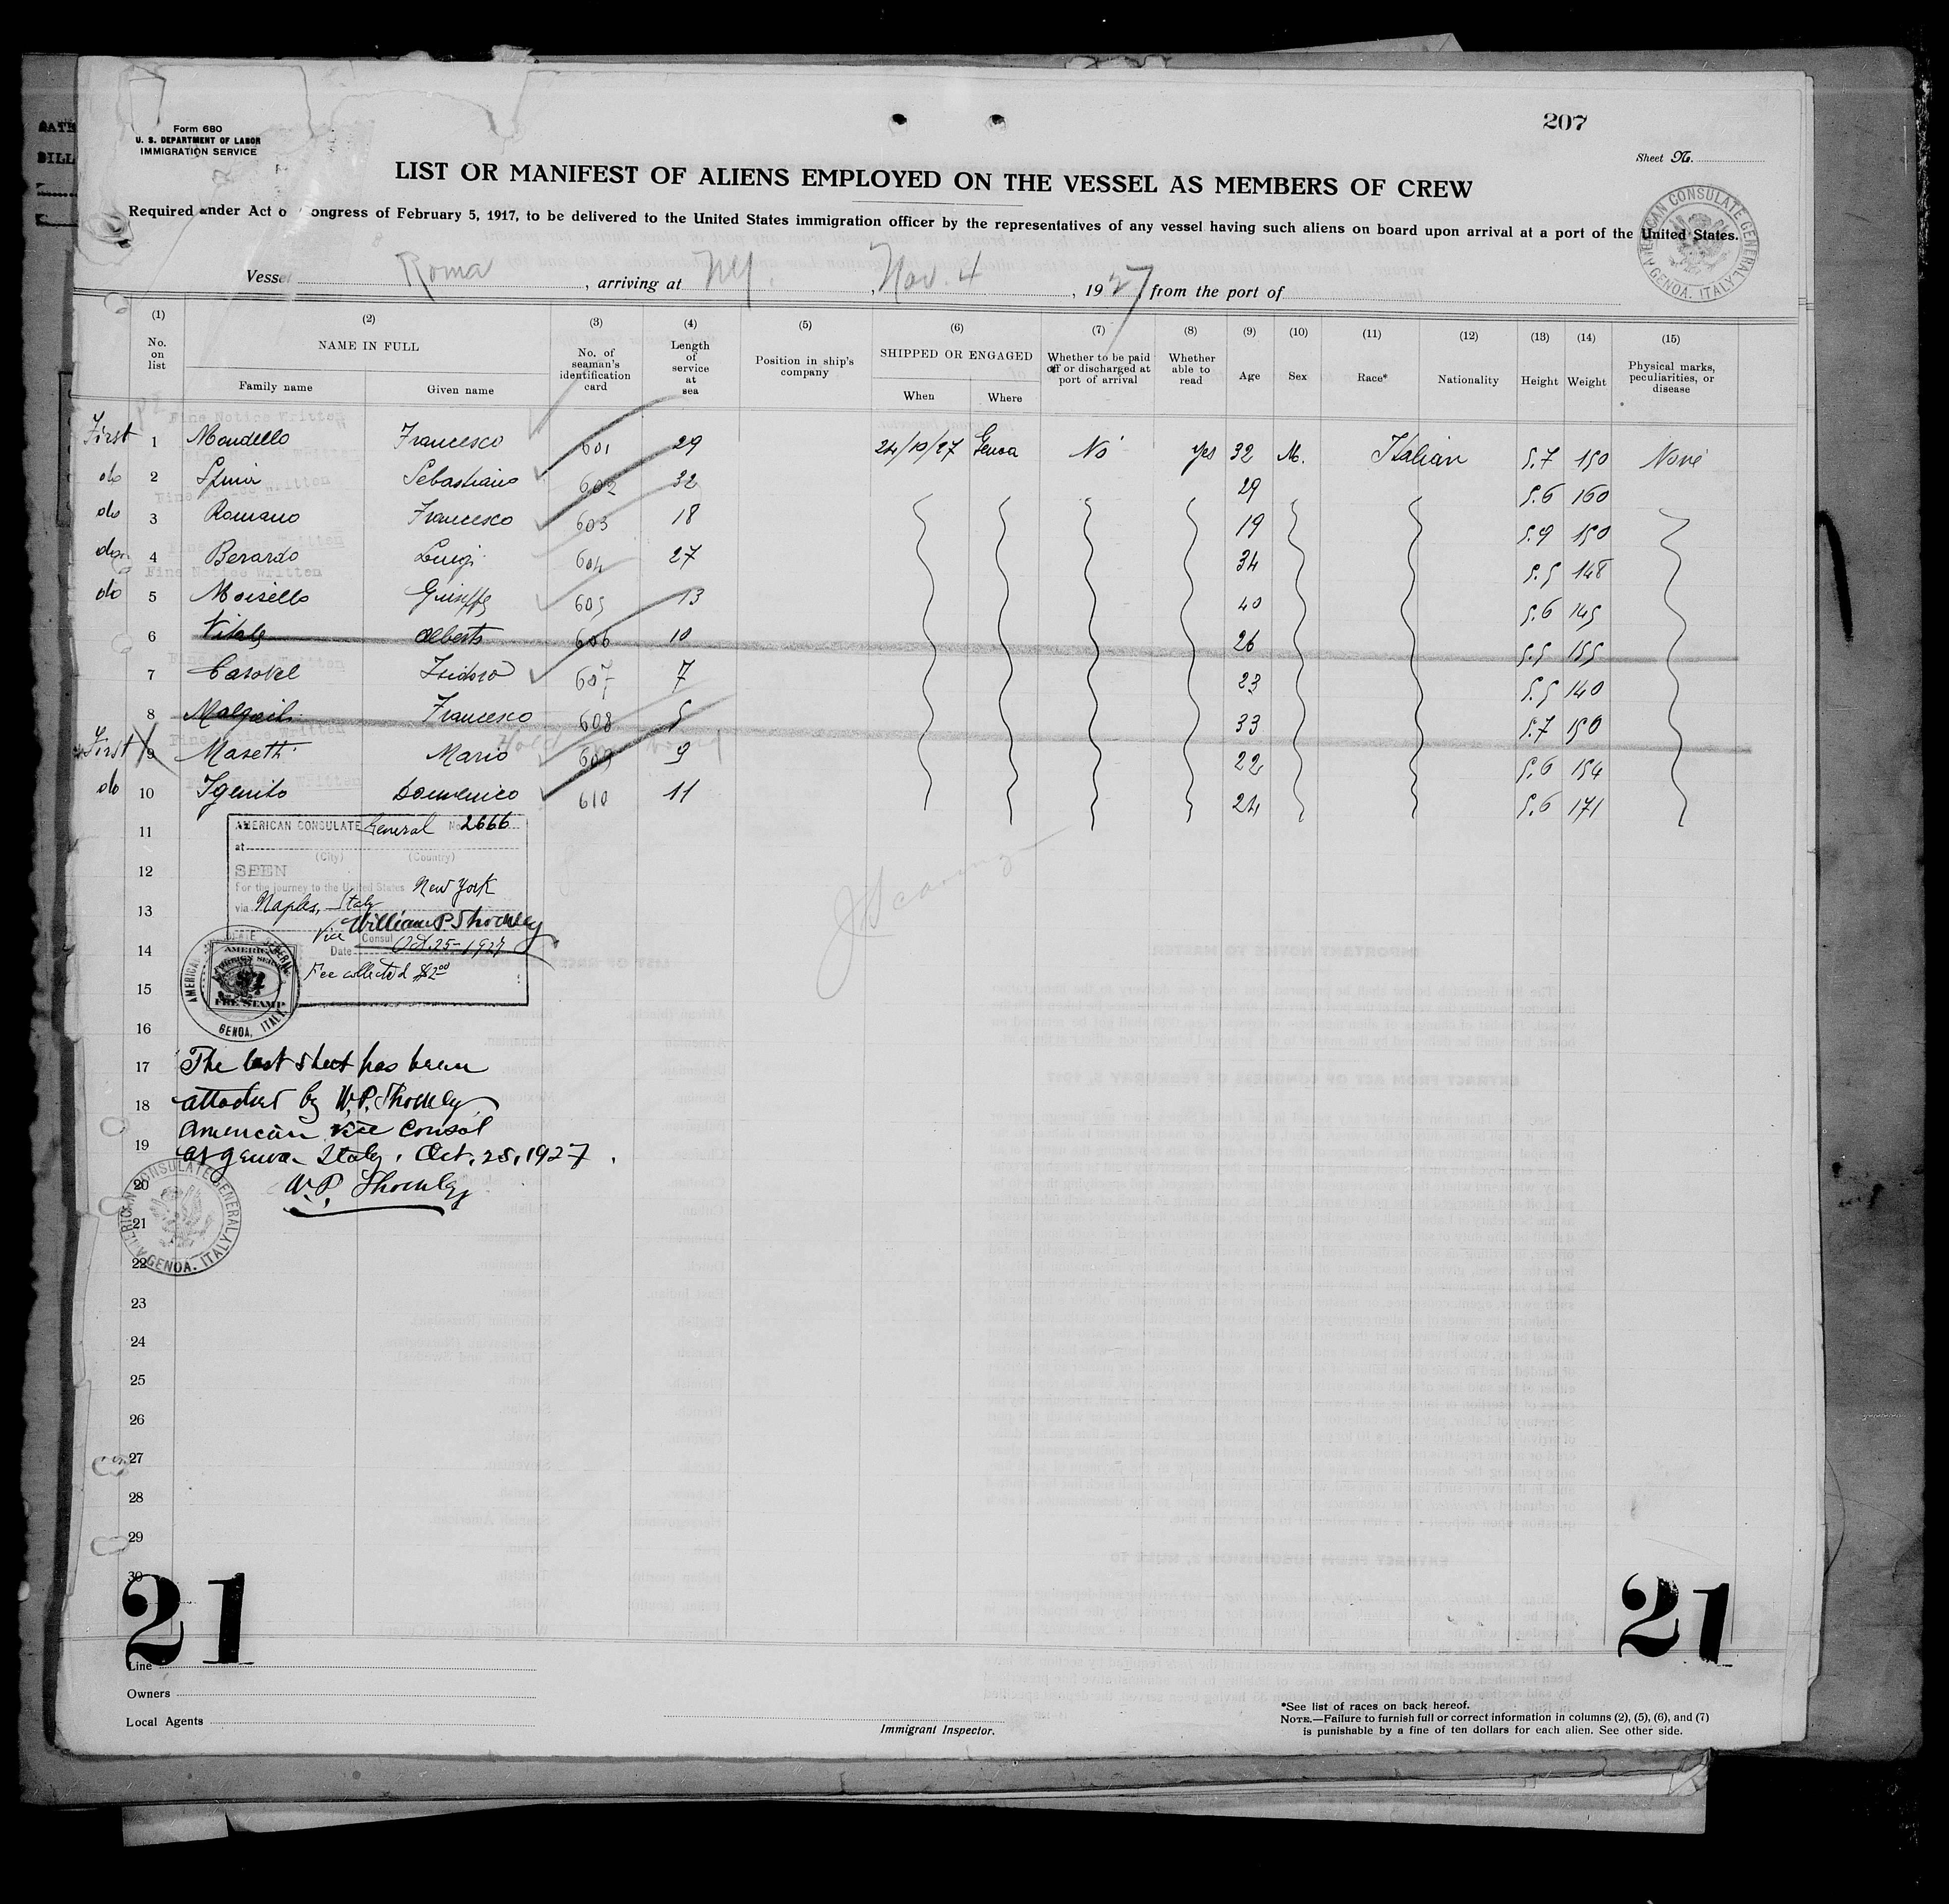 207
Form 680
U. S. DEPARTMENT OF LABOR
IMMIGRATION SERVICE
Sheet No.
LIST OR MANIFEST OF ALIENS EMPLOYED ON THE VESSEL AS MEMBERS OF CREW
Required under Act o ongress of February 5, 1917, to be delivered to the United States immigration officer by the representatives of any vessel having such aliens on board upon arrival at a port of the United States.
AMERICAN CONSULATE GENERAL GENOA, ITALY
Vessel Roma, arriving at NY., Nov. 4, 1927, from the port of
(1) No. on list
(2) NAME IN FULL
Family name Given name
(3) No. of seaman's identification card
(4) Length of service at sea
(5) Position in ship's company
(6) SHIPPED OR ENGAGED
When Where
(7) Whether to be paid off or discharged at port of arrival
(8) Whether able to read
(9) Age
(10) Sex
(11) Race*
(12) Nationality
(13) Height
(14) Weight
(15) Physical marks, peculiarities, or disease
First 1 Mondello Francesco 601 29 24/10/27 Genoa No Yes 32 M. Italian 5.7 150 None
do 2 Sebastiano 602 32 29 5.6 160
do 3 Romano Francesco 603 18 19 5.9 150
do 4 Berardo Luigi 604 27 34 5.5 148
do 5 Moisello Giuseppe 605 13 40 5.6 145
6 Vitale Alberto 606 10 26 5.5 155
7 Isidoro 607 7 23 5.5 140
8 Francesco 608 5 33 5.7 150
First 9 Masetti Mario 609 9 22 5.6 154
do 10 Igenito Domenico 610 11 24 5.6 171
11
12
13
14
15
16
17
18
19
20
21
22
23
24
25
26
27
28
29
30
AMERICAN CONSULATE General No. 2666
at
(City) (Country)
SEEN
For the journey to the United States New York
via Naples, Italy
William P Shockley
Vice Consul
Date Oct. 25-1927
Fee collected $2.00
AMERICAN FOREIGN SERVICE FEE STAMP
GENOA, ITALY
The last sheet has been
attached by W.P. Shockley
American vice Consul
at Genoa Italy, Oct. 25, 1927.
W.P. Shockley
AMERICAN CONSULATE GENERAL GENOA, ITALY
21 21
Line
Owners
Local Agents
Immigrant Inspector.
*See list of races on back hereof.
NOTE.—Failure to furnish full or correct information in columns (2), (5), (6), and (7)
is punishable by a fine of ten dollars for each alien. See other side.